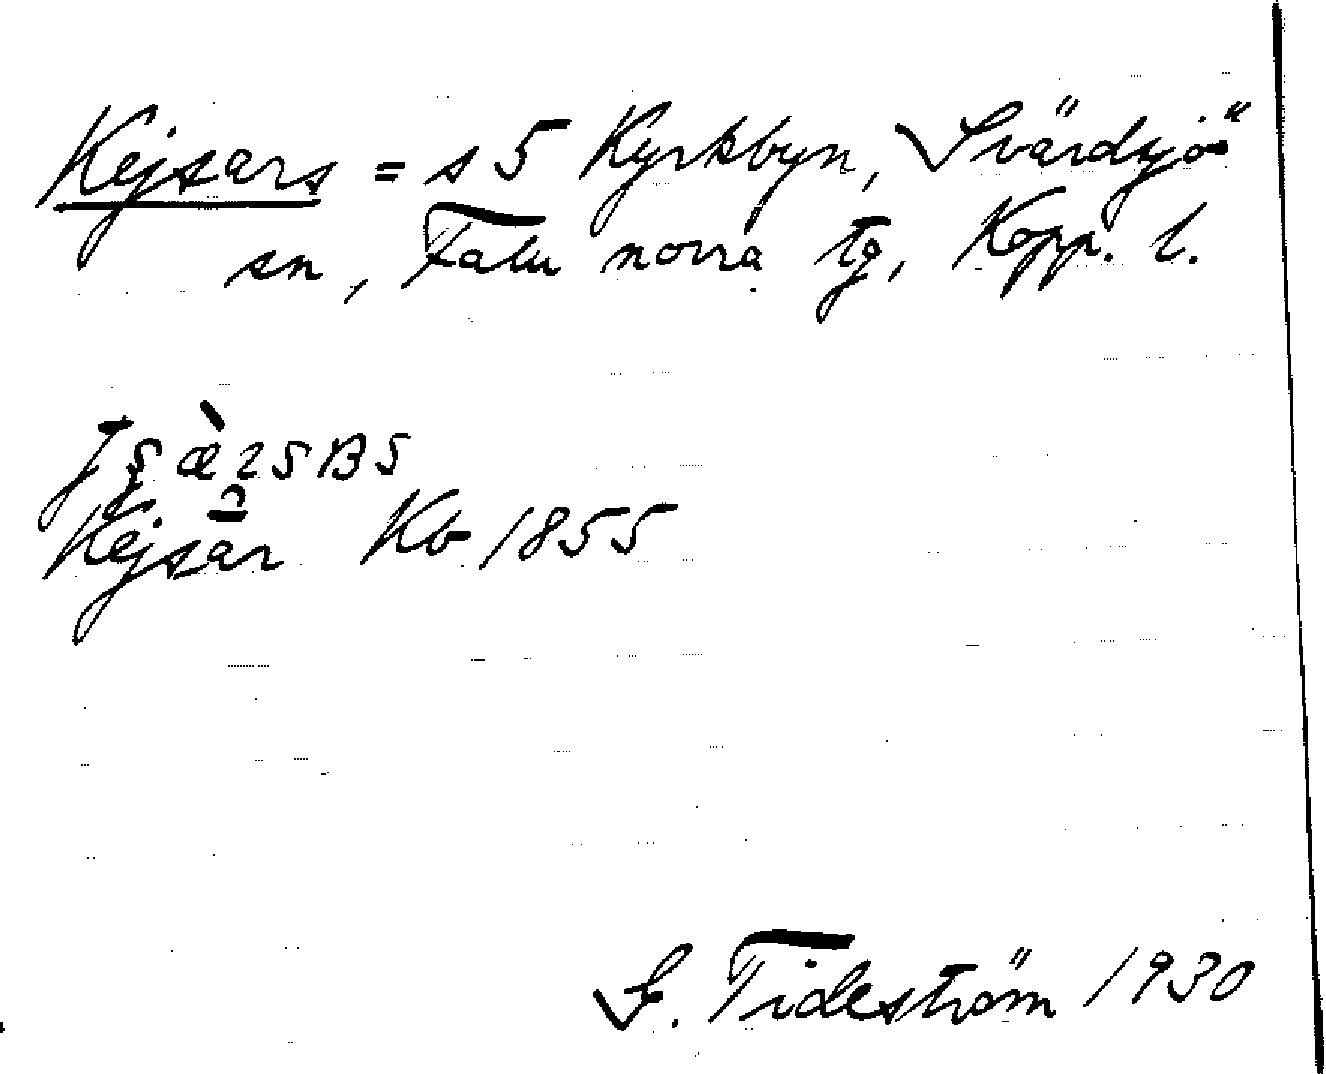 Kejsars = s 5 Kyrkbyn, Svärdsjö
sn, Falu norra tg, Kopp. l.
Kejsar Kb 1855
S. Tideström 1930